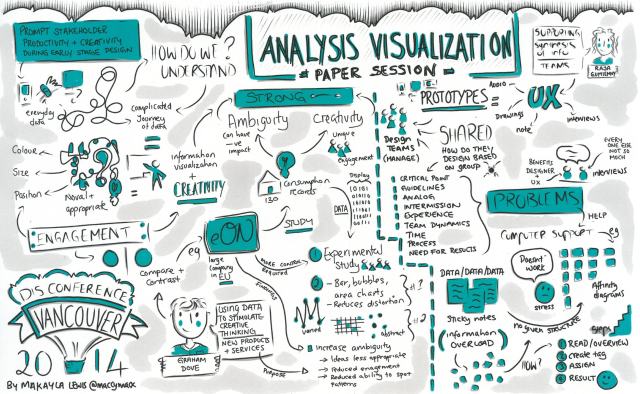 PROMPT STAKEHOLDER
PRODUCTIVITY + CREATIVITY
DURING EARLY STAGE DESIGN
HOW DO WE ?
UNDERSTAND
everyday
data
complicated
Journey
of data
Colour
Size
Position
Novel +
appropriate
information
visualization
+
CREATIVITY
ENGAGEMENT
Compare +
Contrast
DIS CONFERENCE
VANCOUVER
2014
BY MAKAYLA LEWIS @maccymacx
ANALYSIS VISUALIZATION
PAPER SESSION
STRONG
Ambiguity
Can have
-ve
impact
Creativity
Unique
engagement
130
Consumption
records
Display
DATA
STUDY
eg
eON
large
company
in EU
more control
required
GRAHAM
DOVE
USING DATA
TO STIMULATE
CREATIVE
THINKING
NEW PRODUCTS
+ SERVICES
Purpose
① Experimental
Study
② - Bar, bubbles,
area charts
- Reduces distortion
varied
abstract
#1
#2
increase ambiguity
→ Ideas less appropriate
→ Reduced engagement
→ Reduced ability to spot
patterns
SUPPORTING
synthesis
of info
TEAMS
PROTOTYPES =
Audio
Drawings
note
UX
interviews
Design
TEAMS
(MANAGE)
SHARED
HOW DO THEY
DESIGN BASED
ON GROUP
CRITICAL POINT
GUIDELINES
ANALOG
INTERMISSION
EXPERIENCE
TEAM DYNAMICS
TIME
PROCESS
NEED FOR RESULTS
BENEFITS
DESIGNER
+
UX
EVERY
ONE ELSE
NOT SO
MUCH
interviews
PROBLEMS
HELP
Computer Support
eg
DATA/DATA/DATA
Sticky notes
Doesn't
work
stress
Affinity
diagrams
(information
OVERLOAD)
no given structure
HOW?
steps
① READ/OVERVIEW
② create tag
③ ASSIGN
④ RESULT